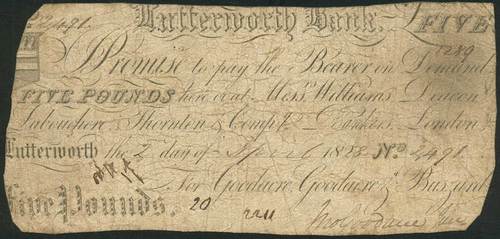 2491 Lutterworth Bank. FIVE
1280
I Promise to pay the Bearer on Demand
FIVE POUNDS here or at Mess.rs Williams Deacon
Labouchere Thornton & Comp.y Bankers, London
Lutterworth the 2 day of 1828 No. 2491
For Goodacre, Goodacre & Buszard
Five Pounds. 20